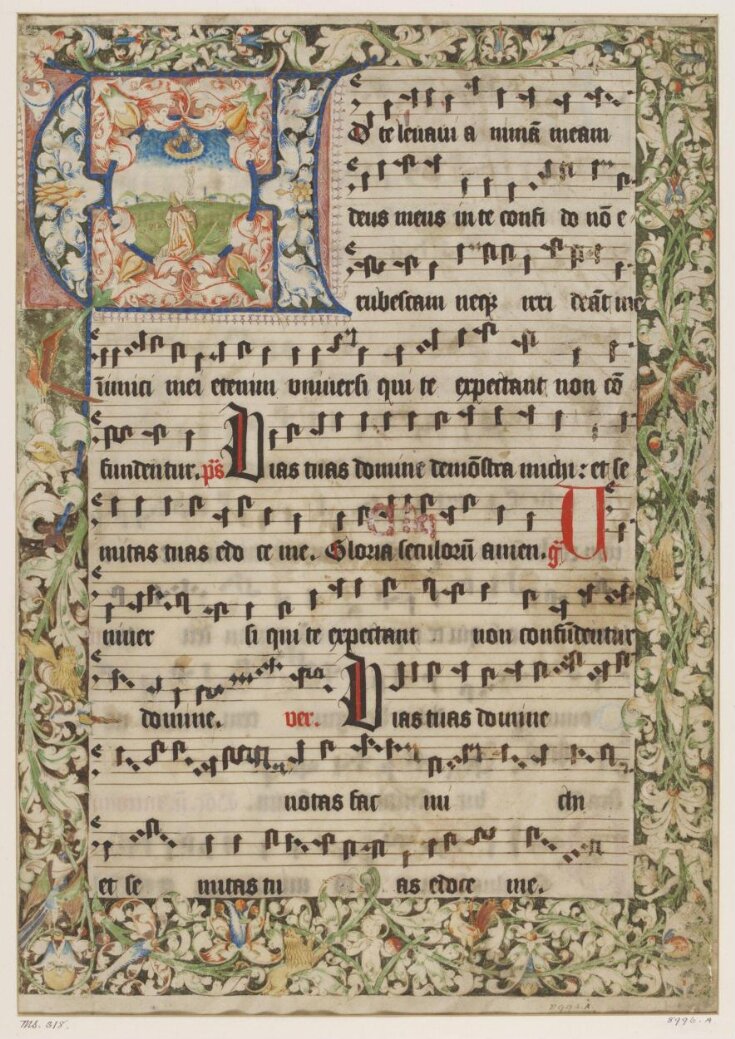 AD te levavi a nimā meam
deus meus in te confi do nō e
rubescam neqʒ irri deāt me
īimici mei etenim vniuersi qui te expectant non cō
fundentur. ps Vias tuas domine demōstra michi: et se
mitas tuas edo ce me. Gloria seculorū amen. g̃ U
niuer si qui te expectant non confūdentur
domine. ver. Vias tuas domine
notas fac mi chi
et se mitas tu as edoce me.
Ms. 618.
8996. A
8996. A